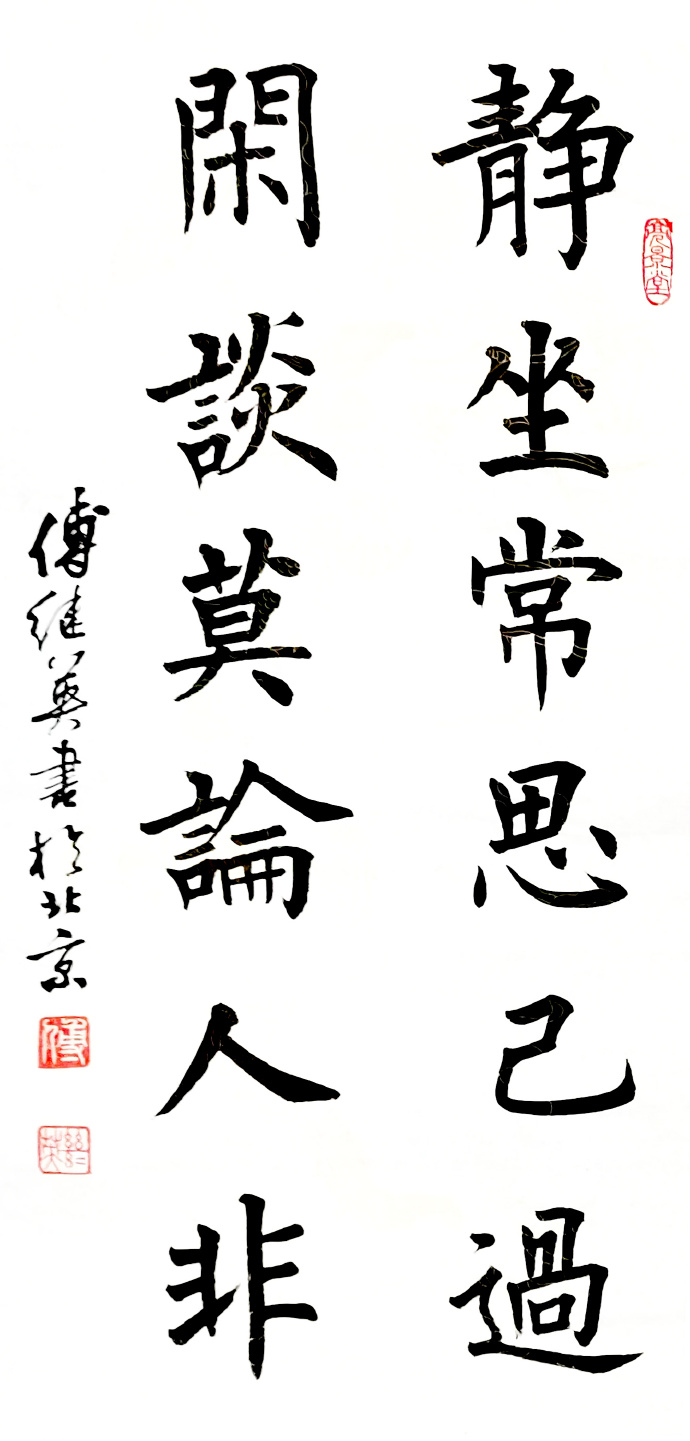 静坐常思己過
閑談莫論人非
傅继英書於北京